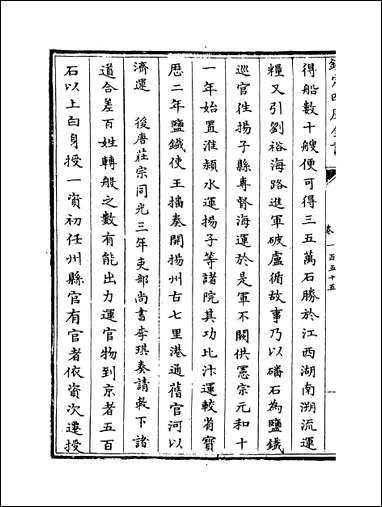 欽定四庫全書
卷一百五十五
得船數十艘便可得三五萬石勝於江西湖南溯流運
糧又引劉裕海路進軍破盧循故事乃以磻石為鹽鐵
巡官往揚子縣專督海運於是軍不闕供憲宗元和十
一年始置淮潁水運揚子等諸院其功比汴運較省寳
厯二年鹽鐵使王播奏開揚州古七里港通舊官河以
濟運　後唐莊宗同光三年吏部尚書李琪奏請敕下諸
道合差百姓轉般之數有能出力運官物到京者五百
石以上白身授一資初任州縣官有官者依資次遷授